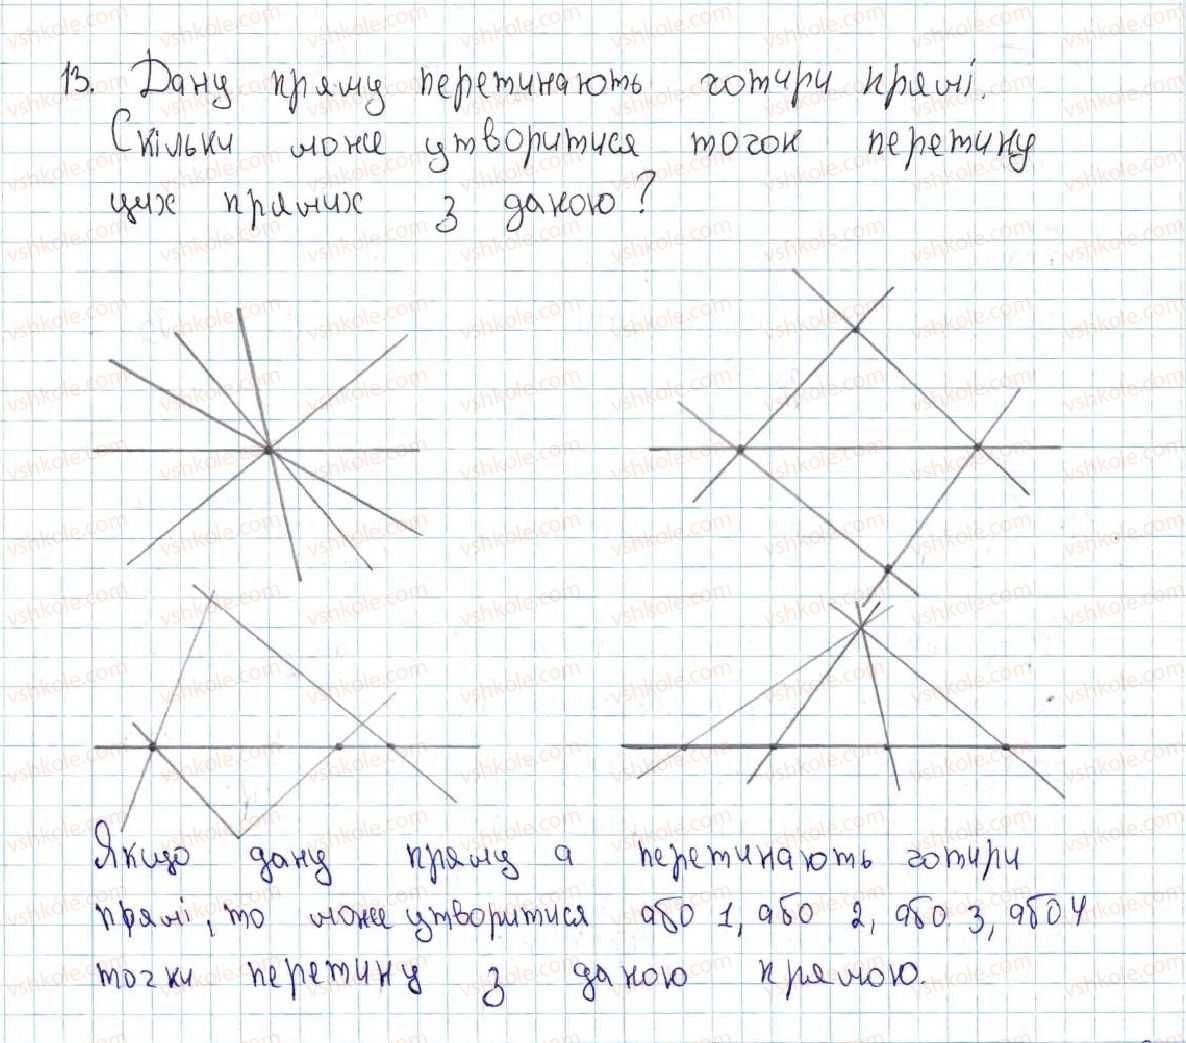 13. Дану пряму перетинають чотири прямі.
Скільки може утворитися точок перетину
цих прямих з даною?
Якщо дану пряму а перетинають чотири
прямі, то може утворитися або 1, або 2, або 3, або 4
точки перетину з даною прямою.
vshkole.com